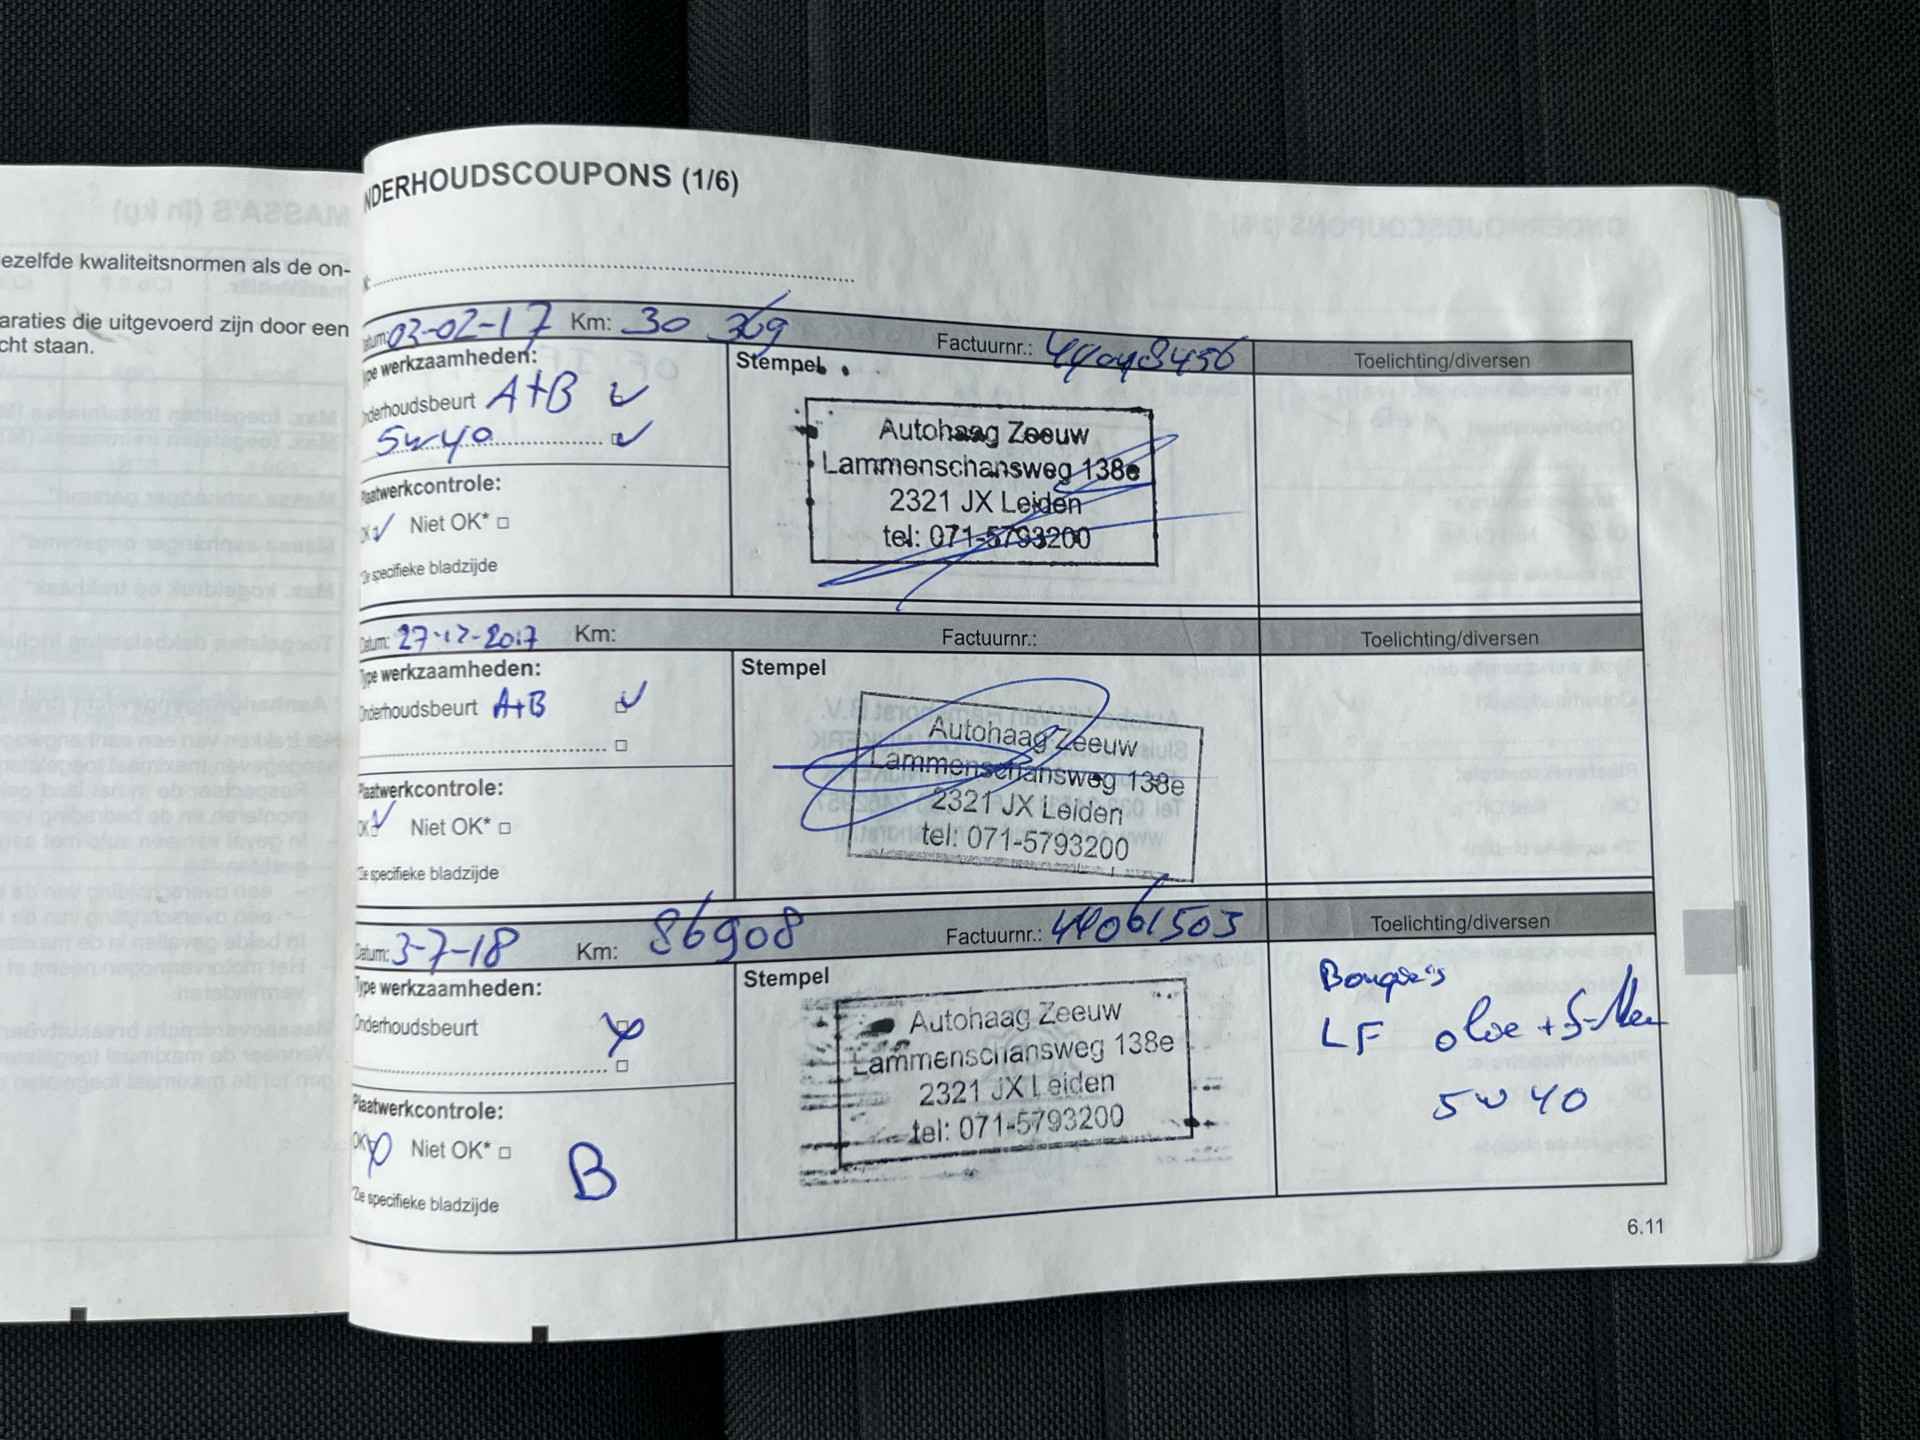 ezelfde kwaliteitsnormen als de on-
araties die uitgevoerd zijn door een
cht staan.
NDERHOUDSCOUPONS (1/6)
Datum: 03-02-17 Km: 30 369 Factuurnr.: 44048456 Toelichting/diversen
Type werkzaamheden: Stempel
Onderhoudsbeurt A+B
5w40
Autohaag Zeeuw
Lammenschansweg 138e
2321 JX Leiden
tel: 071-5793200
Plaatwerkcontrole:
OK Niet OK*
*Zie specifieke bladzijde
Datum: 27-12-2017 Km: Factuurnr.: Toelichting/diversen
Type werkzaamheden: Stempel
Onderhoudsbeurt A+B
Autohaag Zeeuw
Lammenschansweg 138e
2321 JX Leiden
tel: 071-5793200
Plaatwerkcontrole:
OK Niet OK*
*Zie specifieke bladzijde
Datum: 3-7-18 Km: 86908 Factuurnr.: 44061503 Toelichting/diversen
Type werkzaamheden: Stempel
Onderhoudsbeurt
Autohaag Zeeuw
Lammenschansweg 138e
2321 JX Leiden
tel: 071-5793200
Bougie's
LF olie +
5w40
Plaatwerkcontrole:
OK Niet OK* B
*Zie specifieke bladzijde
6.11